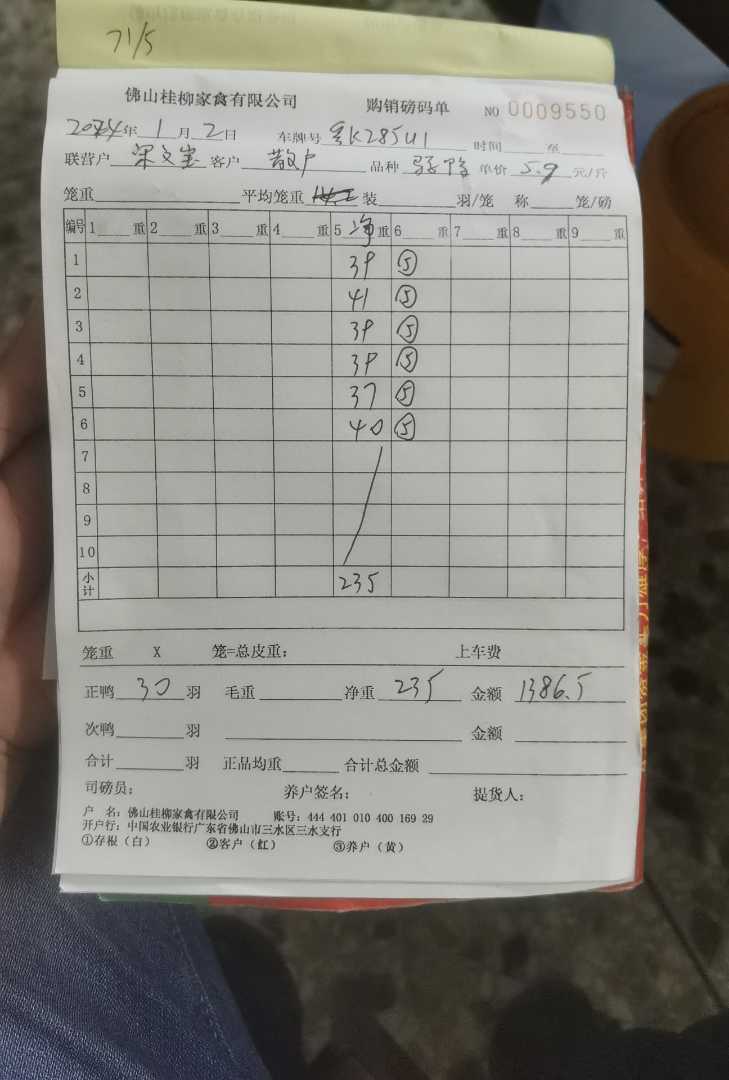 71/5
佛山桂柳家禽有限公司 购销磅码单 NO 0009550
2024年 1 月 2 日 车牌号 粤K285U1 时间 至
联营户 梁文宝 客户 散户 品种 单价 5.9 元/斤
笼重 平均笼重 装 羽/笼 称 笼/磅
编号 1 重 2 重 3 重 4 重 5 净 重 6 重 7 重 8 重 9 重
1 39 ⑤
2 41 ⑤
3 39 ⑤
4 39 ⑤
5 37 ⑤
6 40 ⑤
7
8
9
10
小计 235
笼重 X 笼=总皮重: 上车费
正鸭 30 羽 毛重 净重 235 金额 1386.5
次鸭 羽 金额
合计 羽 正品均重 合计总金额
司磅员: 养户签名: 提货人:
户 名: 佛山桂柳家禽有限公司 账号: 444 401 010 400 169 29
开户行: 中国农业银行广东省佛山市三水区三水支行
①存根（白） ②客户（红） ③养户（黄）